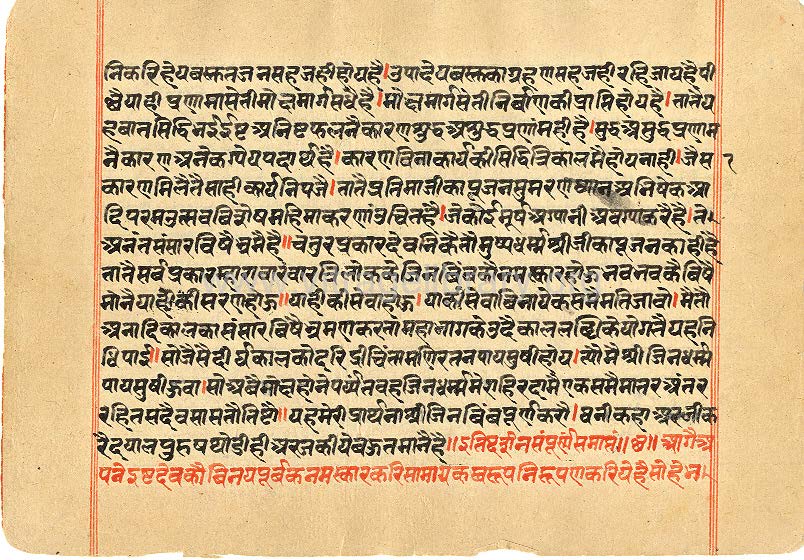 निकरि हेयवस्तनजनसहजहीहोयहै।उपादेयवस्तकाग्रहणसहजहीरहिजायहै।सी
श्चैयाहीप्रणामासेतीमोक्षमार्गसधैहै।मोक्षमार्गसेतीनिर्वाणकीप्राप्तिहोयहै।तातैय
हवातसिद्धिभईईष्टअनिष्टफलनैकारणशुद्धअशुद्धप्रणामहीहै।सुद्धअसुद्धप्रणाम
नैकारणअनेकग्येयपदार्थहै।कारणविनाकार्यकीसिद्धित्रिकालमैहोयनाही।जैसा
कारणमिलैतैसाहीकार्यनिपजै।तातैप्रतिमाजीकापूजनसुमरणध्यानअभिषेकआ
दिपरमउत्सवविशेषमहिमाकरणांउचितहै।जेकोईमूर्षअग्यानीअवग्याकरैहै।ते
अनंतसंसारविषैभ्रमैहै॥चतुरप्रकारदेवनिकैतौमुष्यधर्मश्रीजीकापूजनकाहीहै
तातैसर्वप्रकारमारावारंवारतीनलोककेजिनबिंबकोनमस्कारहोऊ।भवभवकैविषै
मोनैयाहीकीसरणहोऊ॥याहीकीसेवाहोऊ।याकीसेवाविनायेकसमैमतिजावो।मैतौ
अनादिकालकासंसारविषैभ्रमणकरतामहाभागकेउदैकाललब्धिकेयोगतैयहनि
धिपाई॥सोजैसैदीर्घकालकोदरिद्रीचिंतामणिरतनपायसुषीहोय।त्यौमैश्रीजिनधर्म
पायसुषीऊवा।सोअबैमोक्षहोनेपर्यंतवहजिनधर्ममेराहिरदामैएकसमैमात्रअंतर
रहितसदैवसासतौतिष्टो॥यहमेरीप्रार्थनाश्रीजिनबिंबपूर्णकरौ।घनीकहाअरजीक
रैदयालपुरुषथोडीहीअरजकीयेबऊतमानैहै॥इतिष्टवीनसंपूर्णसमाप्तं॥श्व॥आगैअ
पनेइष्टदेवकौविनयपूर्बकनमस्कारकरिसामायकस्वरूपनिरूपणकरियेहैसोहेभ